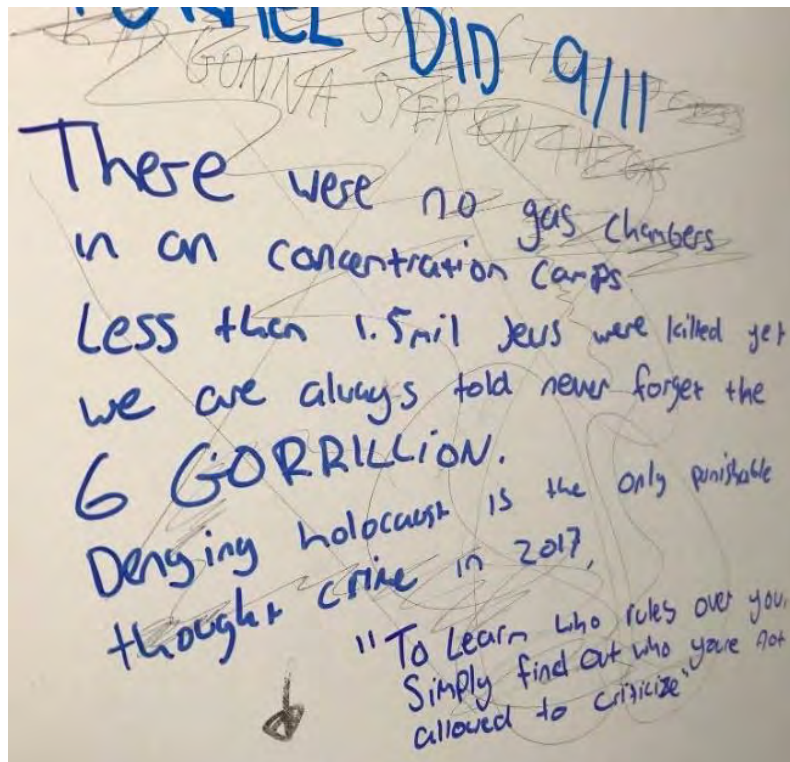 DID 9/11
GONNA STEP ON THE GAS
There were no gas chambers
in an concentration camps.
Less then 1.5mil Jews were killed yet
we are always told never forget the
6 GORRILLION.
Denying holocaust is the only punishable
thought crime in 2017,
"To Learn who rules over you,
Simply find out who youre not
allowed to criticize"